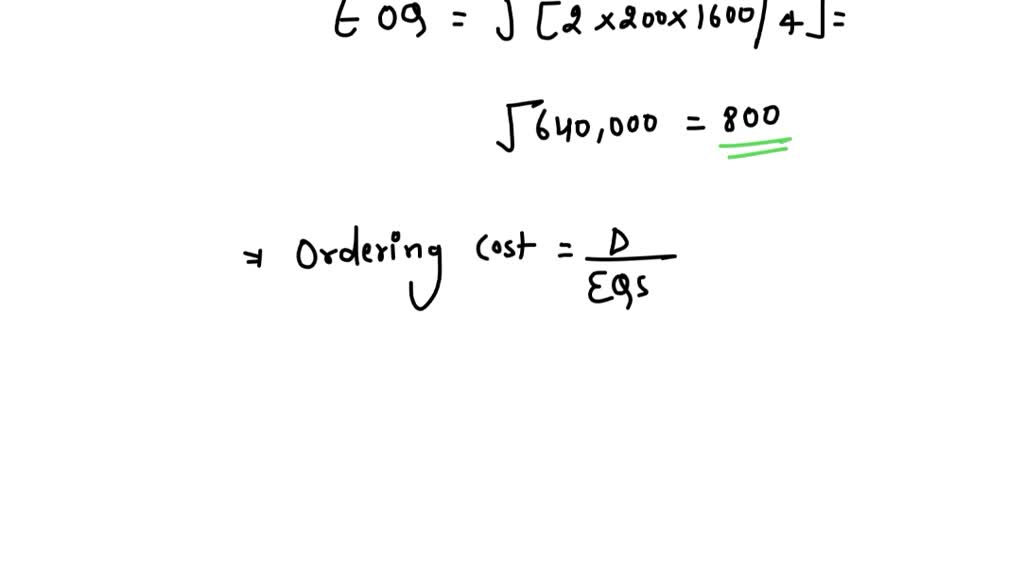 EOQ = √[2 × 200 × 1600 / 4] =
√640,000 = 800
⇒ Ordering cost = D / EQS